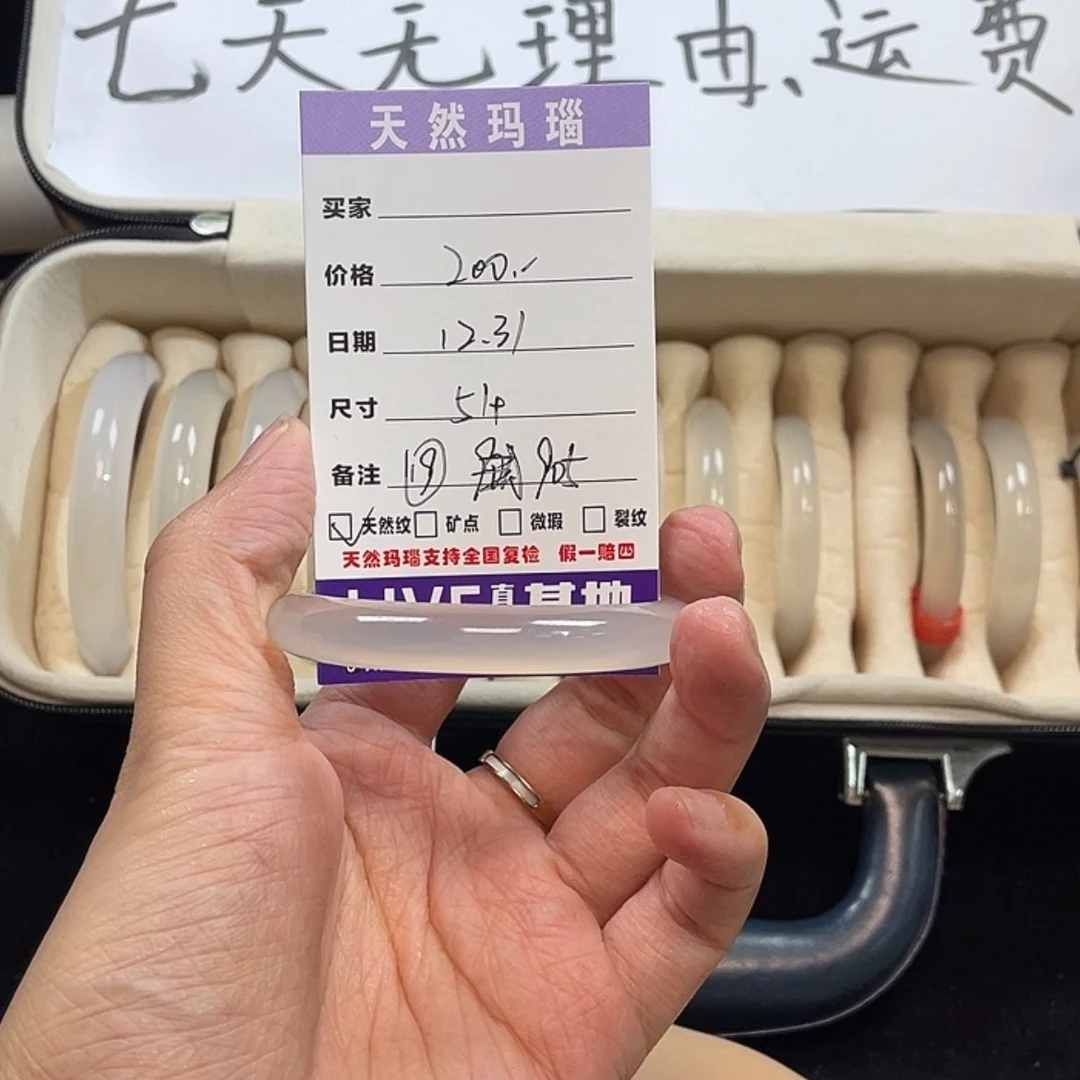 七天无理由、运费
天然玛瑙
买家
价格 200.-
日期 12.31
尺寸 51+
备注 ⑲
天然纹 矿点 微瑕 裂纹
天然玛瑙支持全国复检 假一赔四
LIVE 直 基地